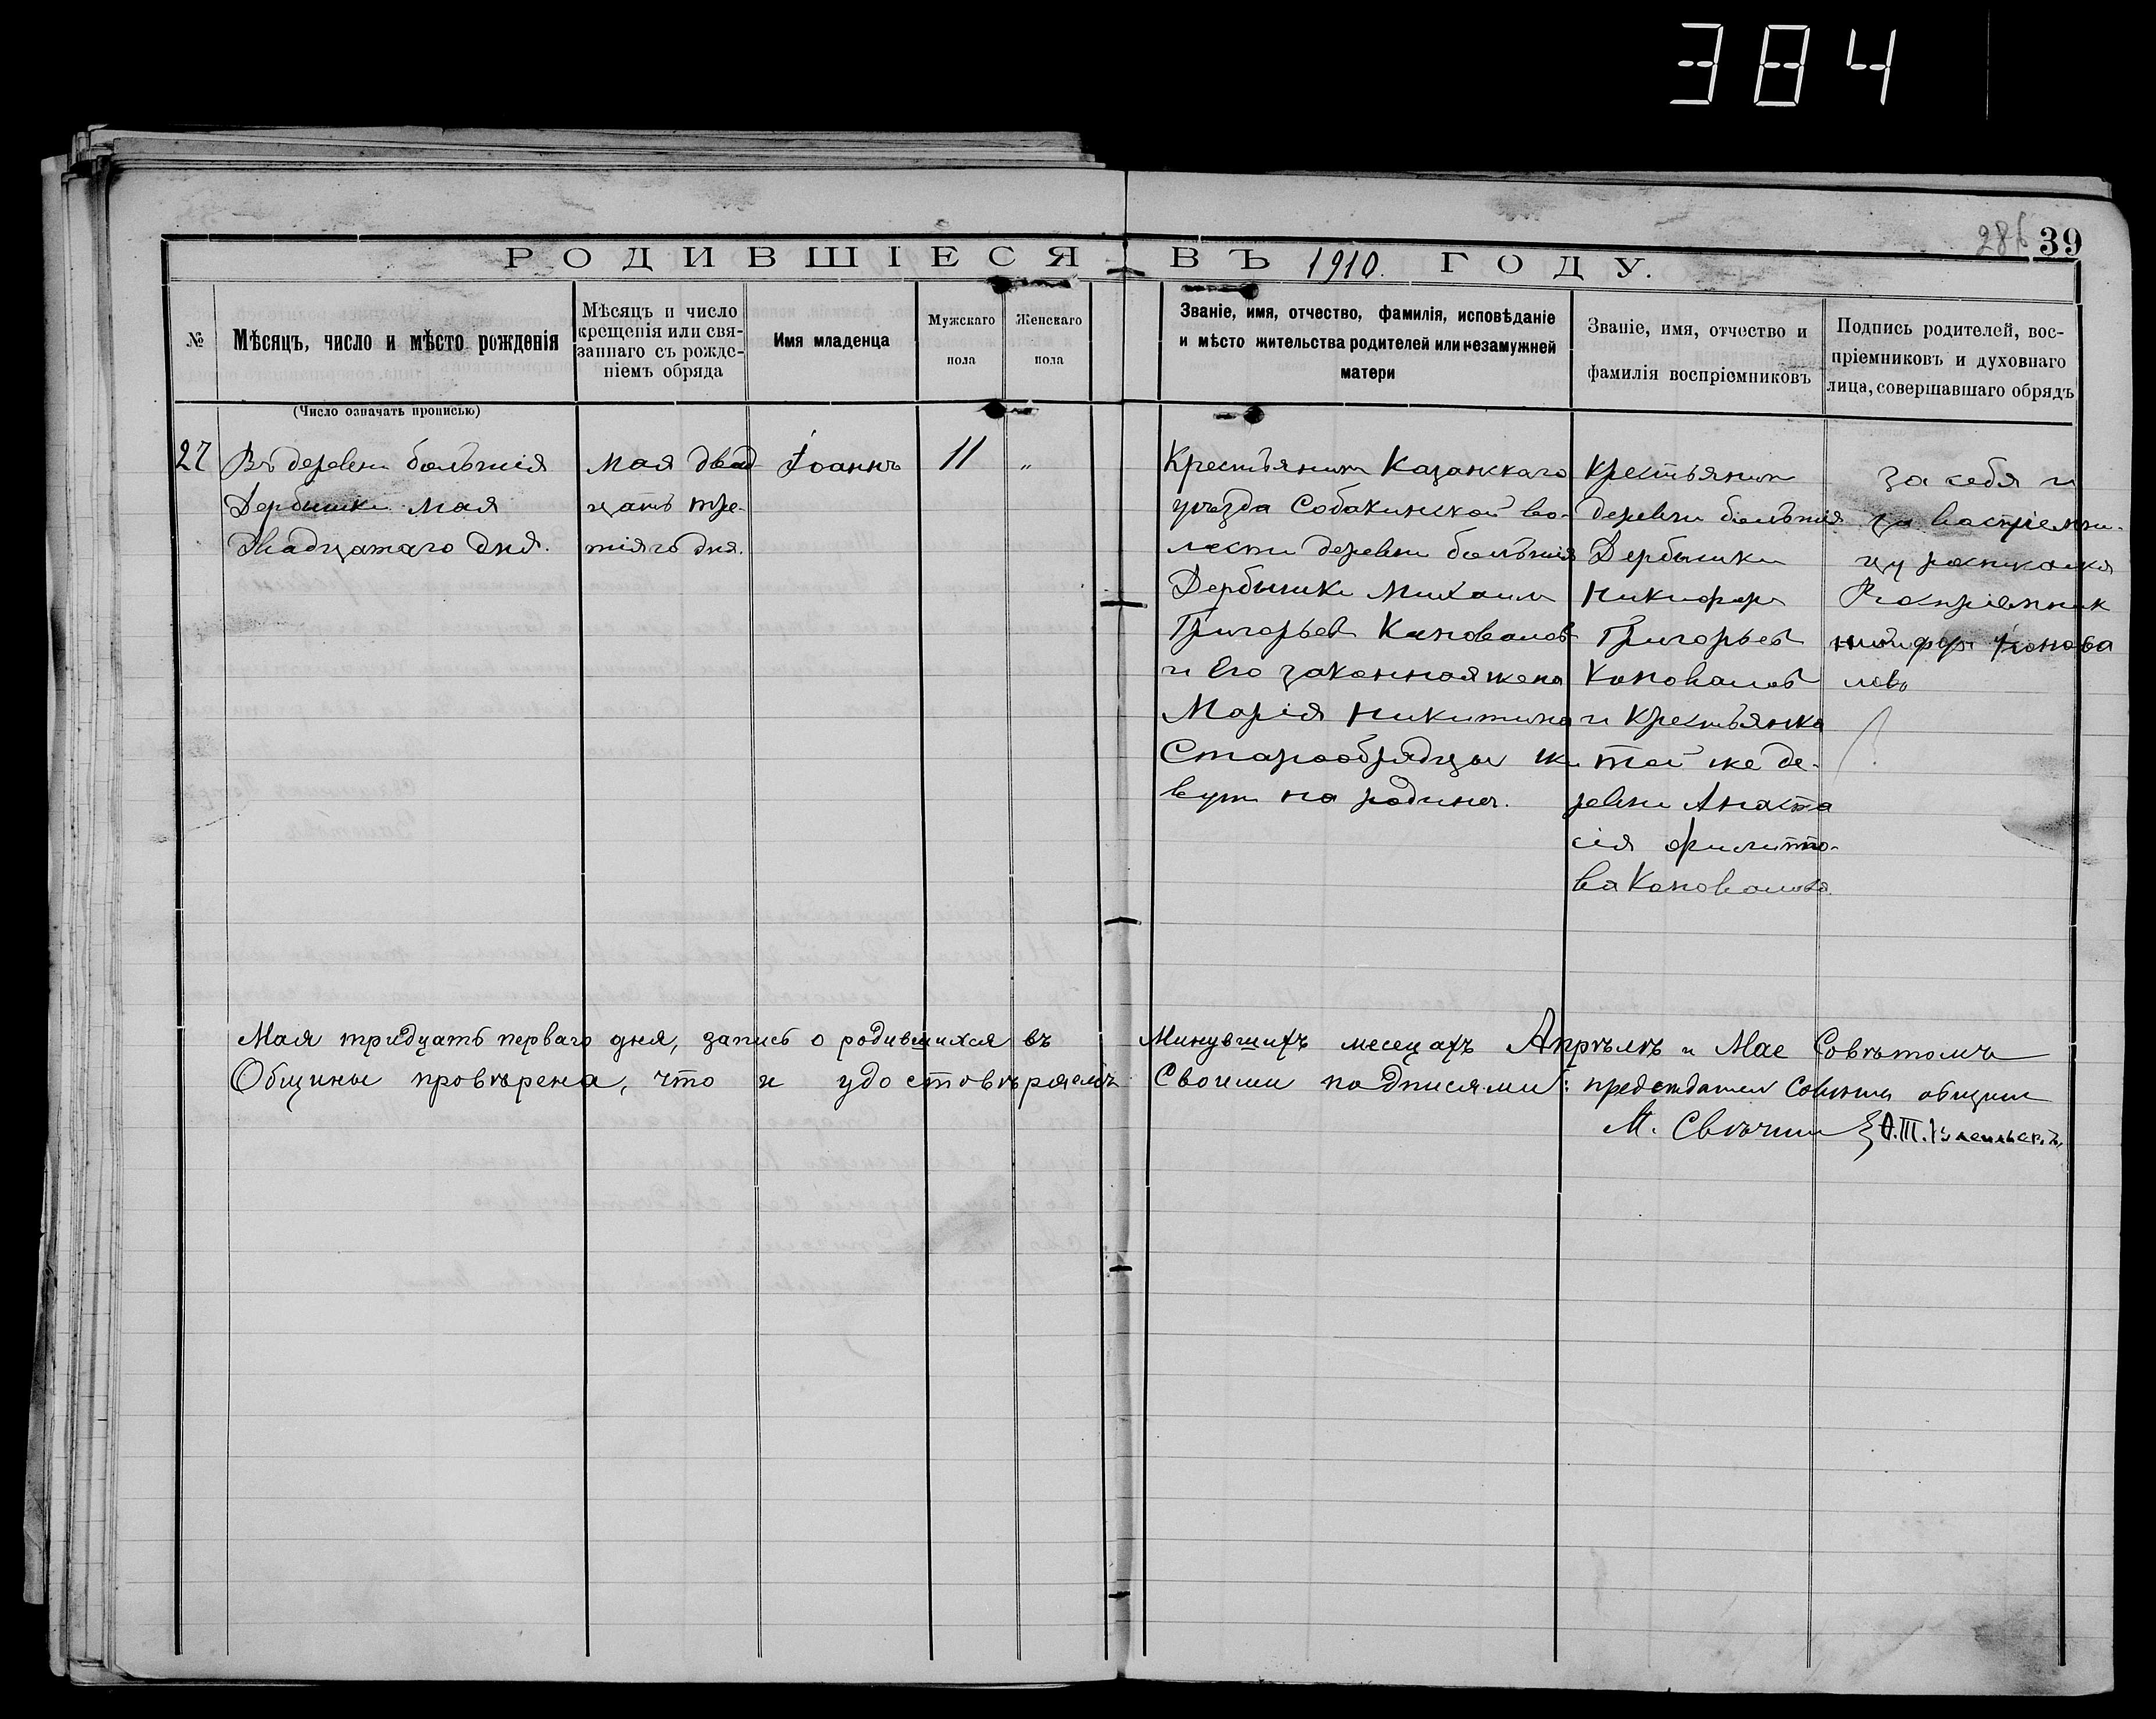 384
286 39
РОДИВШІЕСЯ ВЪ 1910. ГОДУ.
№
Мѣсяцъ, число и мѣсто рожденія
Мѣсяцъ и число
крещенія или свя-
заннаго съ рожде-
ніемъ обряда
Имя младенца
Мужскаго
пола
Женскаго
пола
Званіе, имя, отчество, фамилія, исповѣданіе
и мѣсто жительства родителей или незамужней
матери
Званіе, имя, отчество и
фамилія воспріемниковъ
Подпись родителей, вос-
пріемниковъ и духовнаго
лица, совершавшаго обрядъ
(Число означать прописью)
27
Въ деревни большія
Дербышки Мая
Двадцатаго дня.
Мая двад
цать тре-
тіяго дня.
Іоаннъ
11
„
Крестьянинъ Казанскаго
уѣзда Собакинской во-
лости деревни большія
Дербышки Михаилъ
Григорьевъ Коноваловъ
и Его законная жена
Марія Никитина
Старообрядцы жи
вутъ на родинѣ.
Крестьянинъ
деревни большія
Дербышки
Никифоръ
Григорьевъ
Коноваловъ
и Крестьянка
той же де-
ревни Анаста
сія Филиппо-
ва Коновалова.
За себя и
за васпріемни-
цу
Васпріемник
Никифоръ Конова
ловъ
Мая тридцать перваго дня, запись о родившихся въ Минувшихъ месецахъ Апрѣлѣ и Мае Совѣтомъ
Общины провѣрена, что и удостовѣряемъ Своими подписями: председатель Совета общины
М. Свѣчин